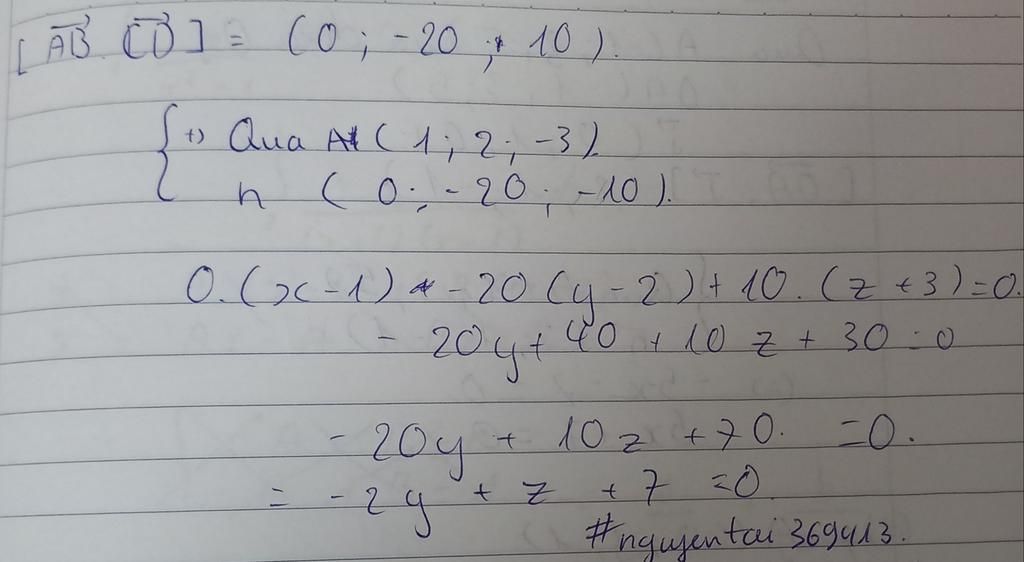 [ AB CD ] = (0 ; -20 ; 10 ).
+) Qua A ( 1 ; 2 ; -3 )
n ( 0 ; -20 ; -10 ).
0.(x-1) - 20 (y-2) + 10. (z +3) =0.
- 20y + 40 + 10 z + 30 = 0
- 20y + 10z + 70. =0.
= - 2y + z + 7 =0
#nguyentai 369413.